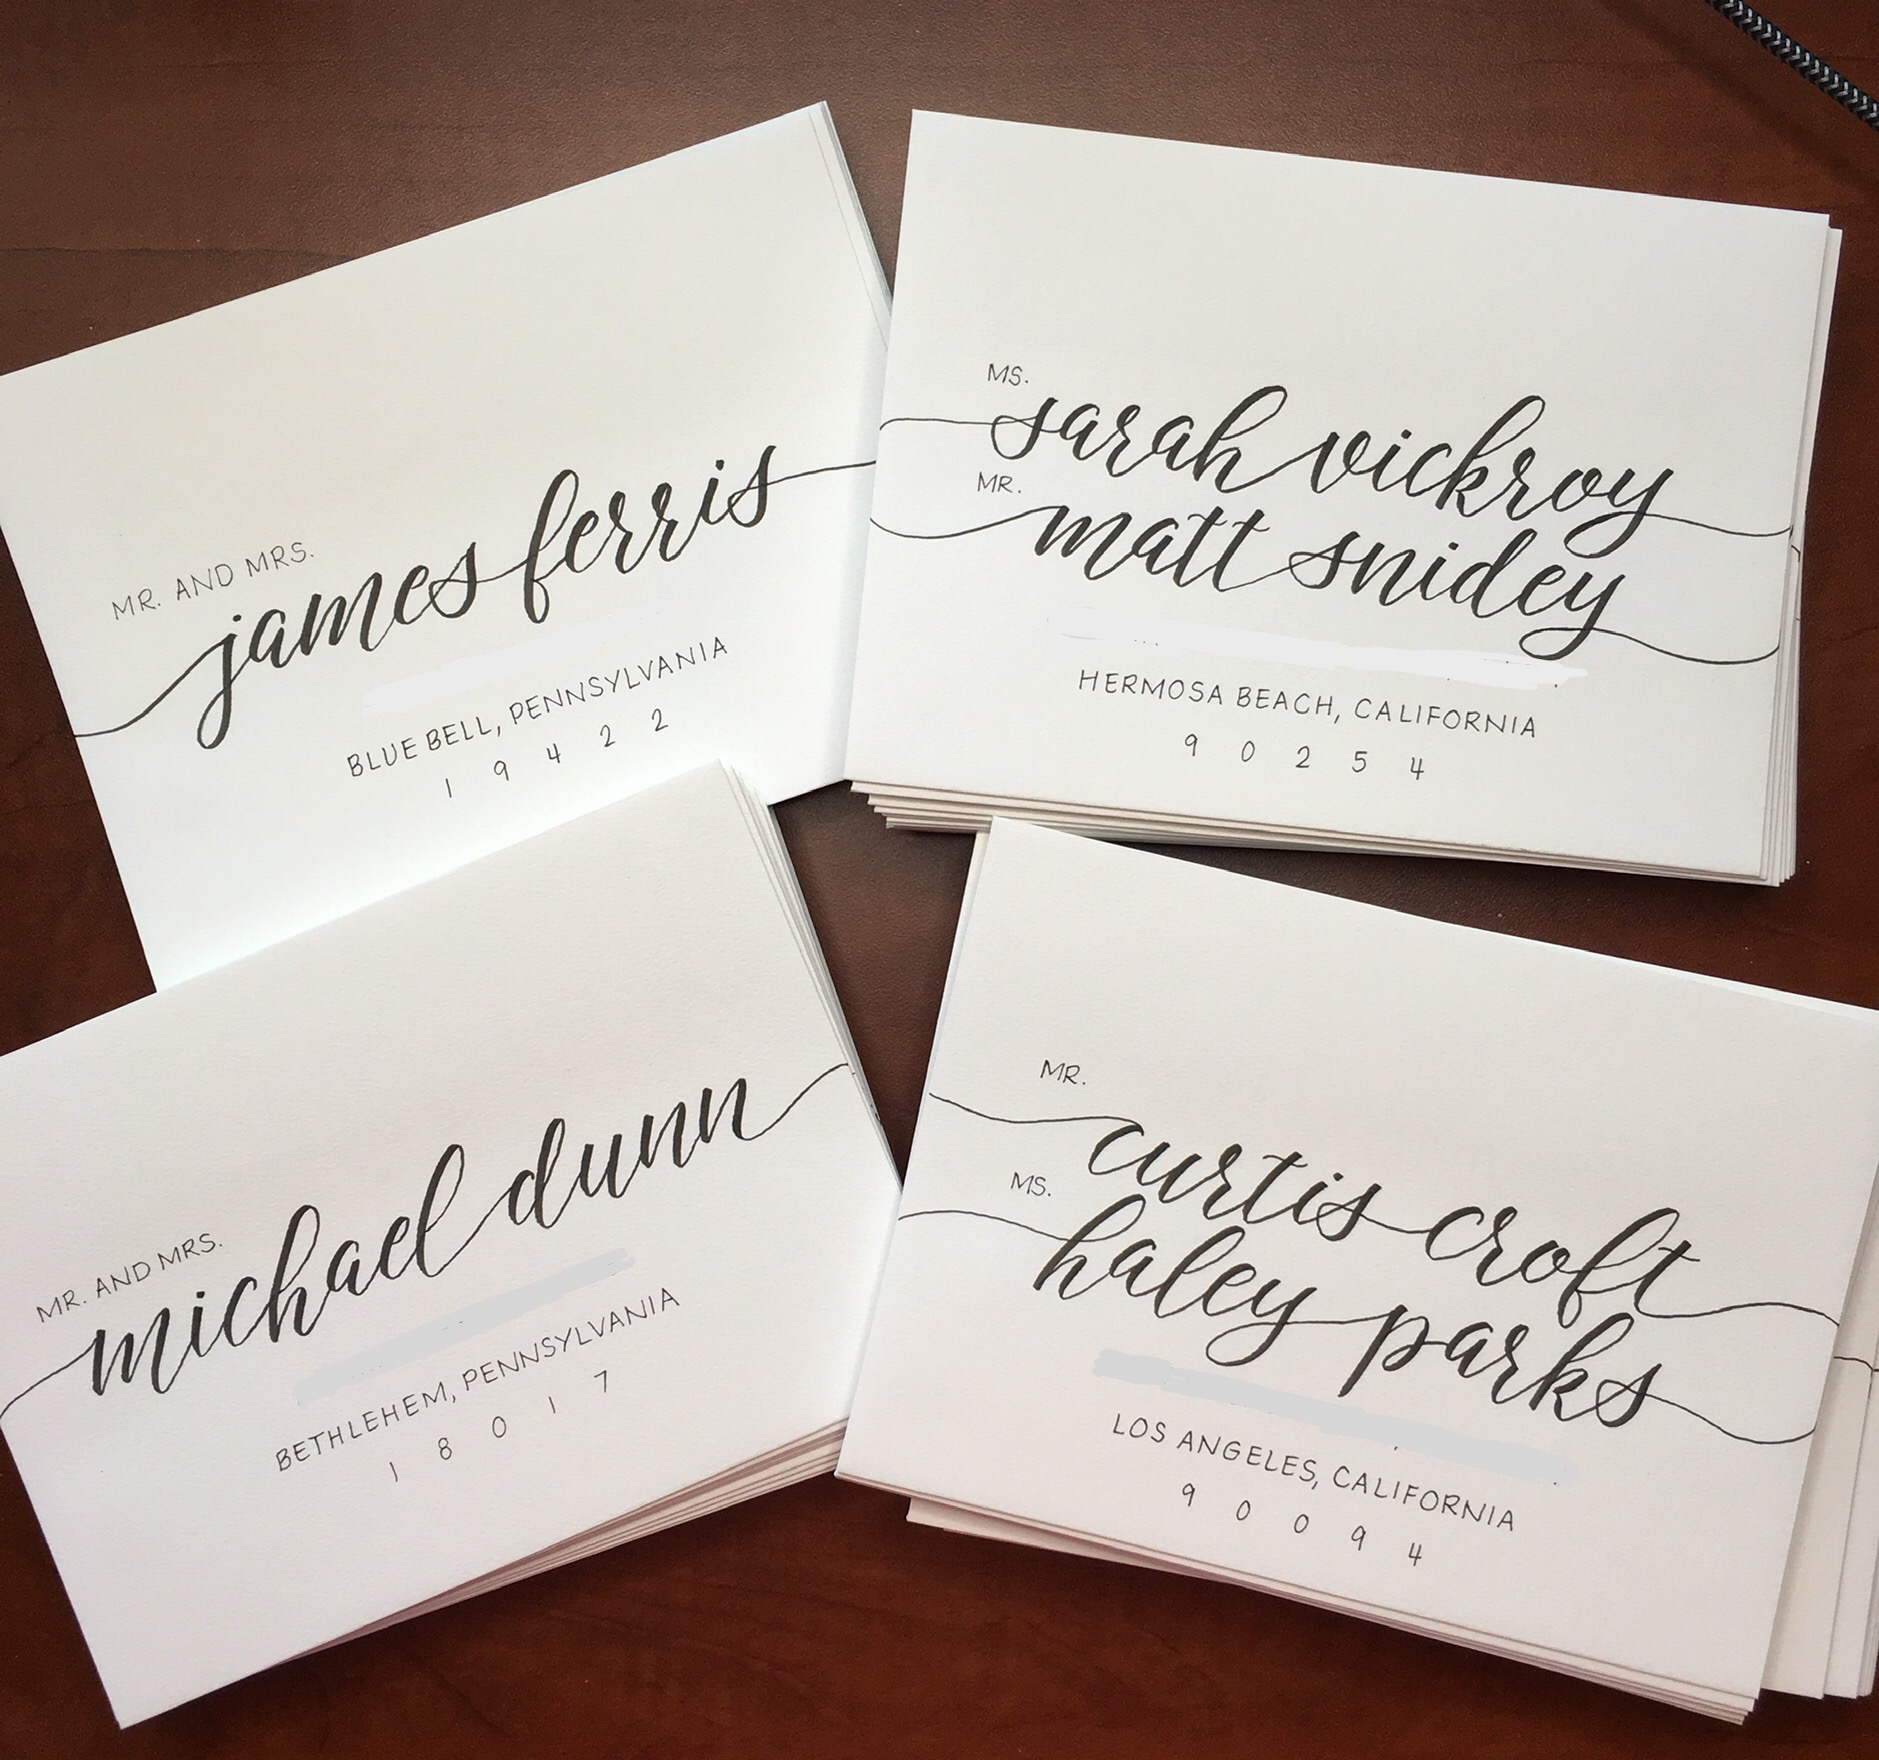 MR. AND MRS.
james ferris
BLUE BELL, PENNSYLVANIA
1 9 4 2 2
MS.
sarah vickroy
MR.
matt snidey
HERMOSA BEACH, CALIFORNIA
9 0 2 5 4
MR. AND MRS.
michael dunn
BETHLEHEM, PENNSYLVANIA
1 8 0 1 7
MR.
curtis croft
MS.
haley parks
LOS ANGELES, CALIFORNIA
9 0 0 9 4